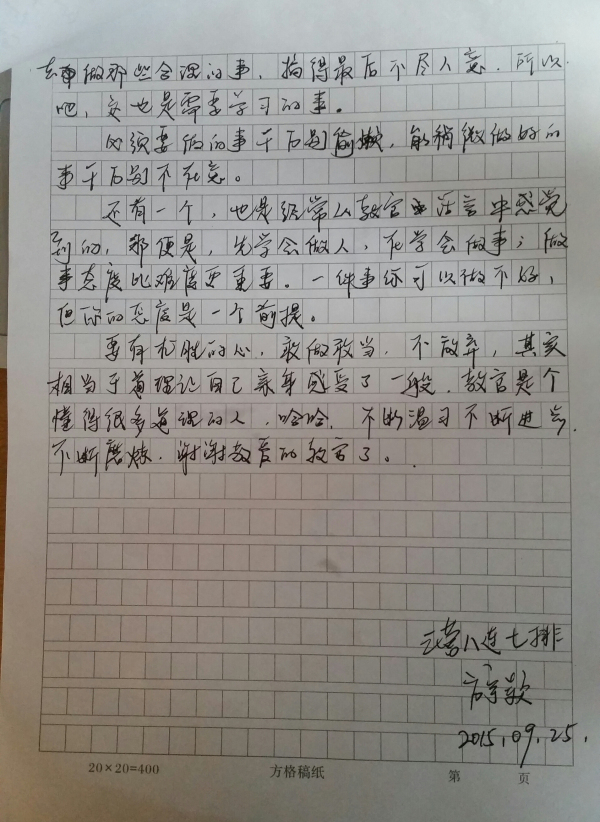 去做那些合理的事，搞得最后不尽人意．所以
吧，这也是需要学习的事。
必须要做的事千万别偷懒，能稍微做好的
事千万别不在意。
还有一个，也是经常从教官话言中感觉
到的，那便是，先学会做人，在学会做事；做
事态度比难度更重要。一件事你可以做不好，
但你的态度是一个前提。
要有好胜的心，敢做敢当，不放弃，其实
相当于着理论自己亲身感受了一般．教官是个
懂得很多道理的人．哈哈．不断温习不断进步．
不断磨炼．谢谢敬爱的教官了。
营八连七排
2015.09.25.
20×20=400
方格稿纸
第 页